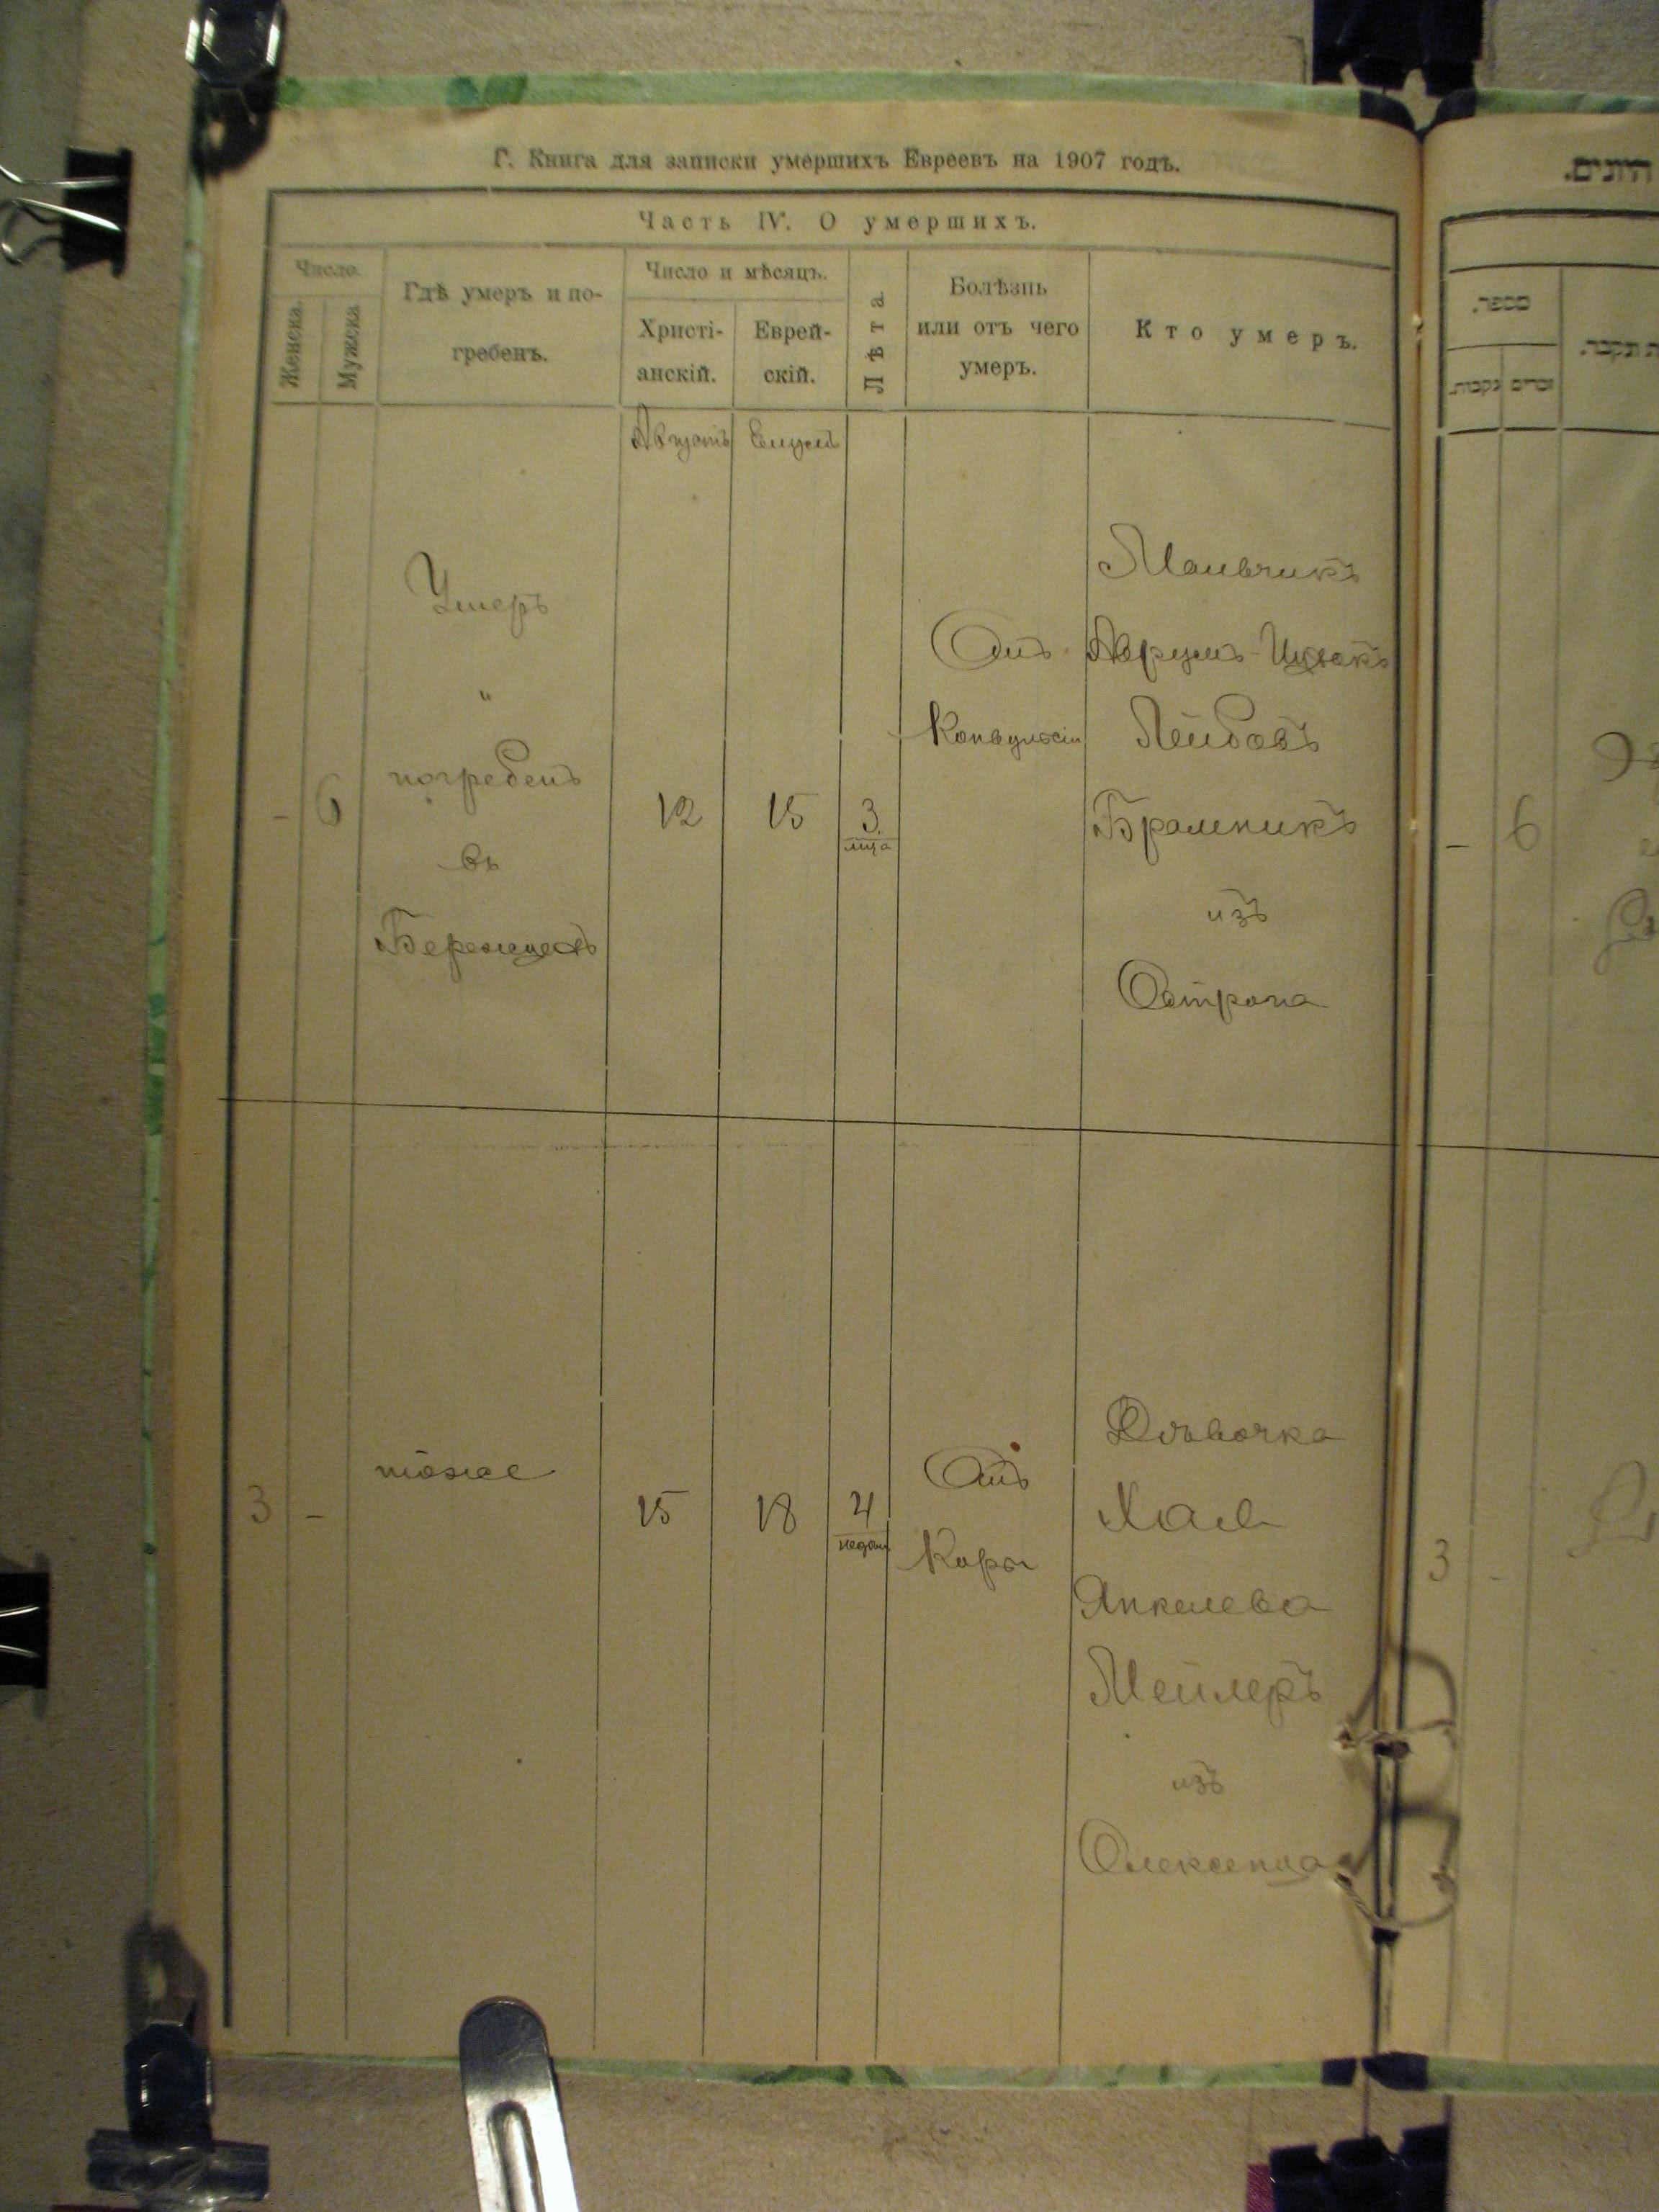 Г. Книга для записки умершихъ Евреевъ на 1907 годъ.
Часть IV. О умершихъ.
Число.
Женска.
Мужска
Гдѣ умеръ и по-
гребенъ.
Число и мѣсяцъ.
Христі-
анскій.
Еврей-
скій.
Лѣта
Болѣзнь
или отъ чего
умеръ.
Кто умеръ.
Августъ
Елулъ
-
6
Умеръ
"
погребенъ
въ
Бережцахъ
12
15
3
мца
Отъ
Конвульсіи
Мальчикъ
Аврумъ-Ицхакъ
Лейбовъ
Брамникъ
изъ
Острога
3
-
тоже
15
18
4
недѣли
Отъ
Коры
Дѣвочка
Хая
Янкелева
Мейлеръ
изъ
Олексенца
היונים.
מספר.
נקבות.
זכרים
ת תקבר.
-
6
3
-